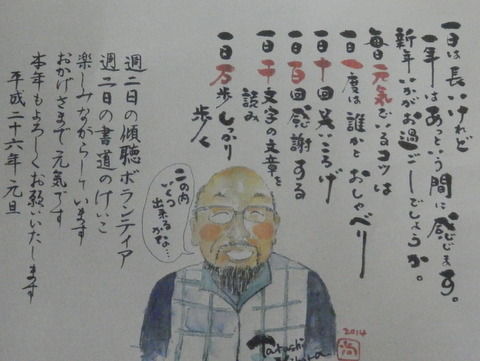 一日は長いけれど
一年はあっという間に感じます。
新年いかがお過ごしでしょうか。
毎日元気でいるコツは
一日一度は誰かとおしゃべり
一日十回笑いころげ
一日百回感謝する
一日千文字の文章を
読み
一日万歩しっかり
歩く
週二日の傾聴ボランティア
週二日の書道のけいこ
楽しみながらしています
おかげさまで元気です
本年もよろしくお願いいたします
平成二十六年 元旦
この内
いくつ
出来る
かな…
2014